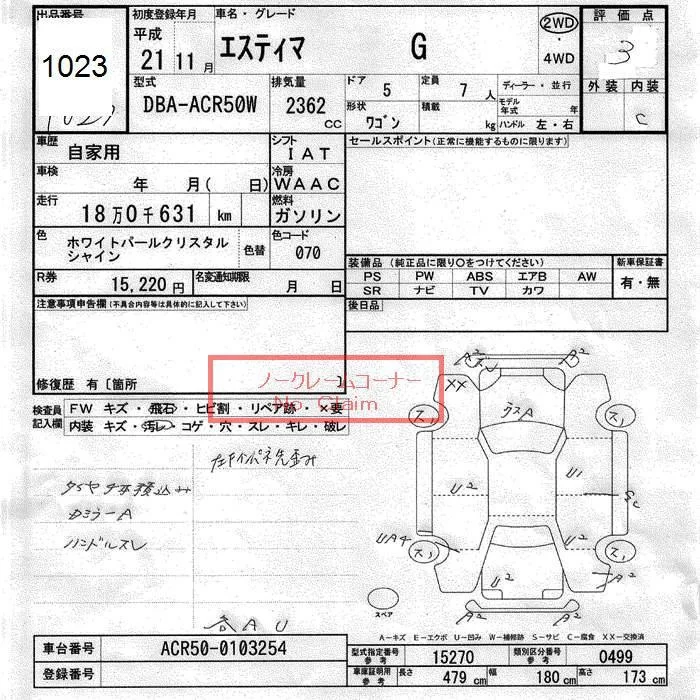 出品番号
1023
初度登録年月
平成
21 11月
車名・グレード
エスティマ G
2WD
・
4WD
評価点
3
外装 内装
C
型式
DBA-ACR50W
排気量
2362
CC
ドア
5
定員
7 人
形状
ワゴン
積載
kg
ディーラー・並行
モデル
年式 年
ハンドル 左・右
車歴
自家用
シフト
IAT
車検
年 月( 日)
冷房
WAAC
走行
18万0千631 km
燃料
ガソリン
色
ホワイトパールクリスタル
シャイン
色替
色コード
070
R券
15,220円
名変通知期限
月 日
セールスポイント(正常に機能するものに限ります)
装備品(純正品に限り○をつけてください)
PS PW ABS エアB AW
SR ナビ TV カワ
新車保証書
有・無
後日品
注意事項申告欄(不具合内容等は具体的に記入して下さい)
修復歴 有〔箇所 〕
ノークレームコーナー
No Claim
検査員
記入欄
FW キズ・飛石・ヒビ割・リペア跡・×要
内装 キズ・汚レ・コゲ・穴・スレ・キレ・破レ
ハンドルスレ
各AU
A2
A2
XX
ガラスA
U2
U1
UA4
U2
U2
U2
A2
A2
A2
スペア
A-キズ E-エクボ U-凹み W-補修跡 S-サビ C-腐食 XX-交換済
車台番号
ACR50-0103254
登録番号
型式指定番号
参考
15270
類別区分番号
参考
0499
車庫証明用
参考
長さ
479 cm
幅
180 cm
高さ
173 cm